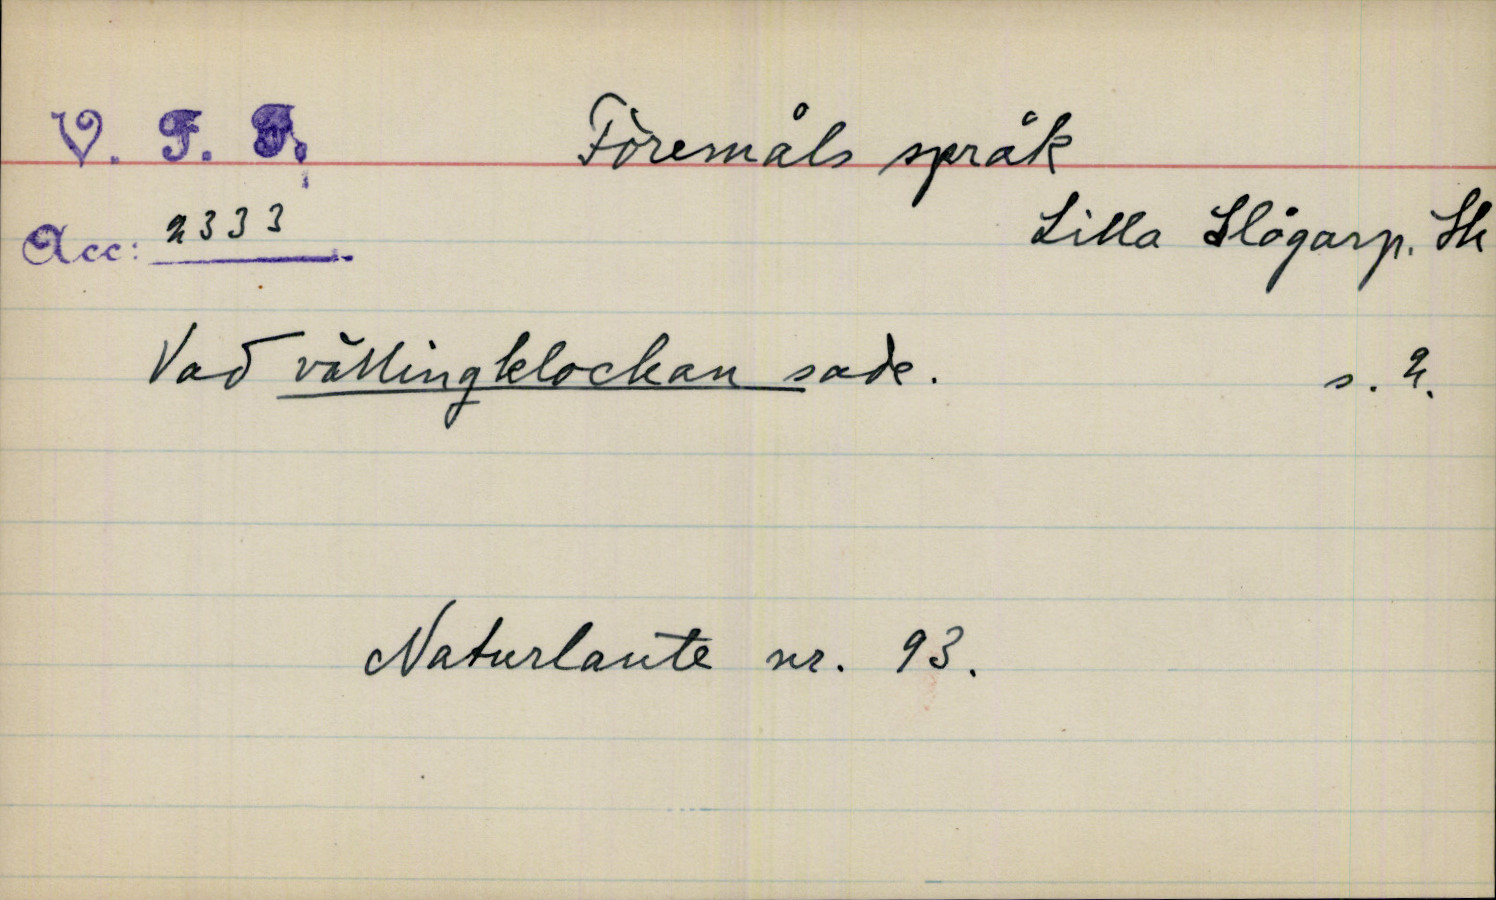 V. F. F.
Föremåls språk
Acc: 2333
Lilla Slågarp. Sk
Vad vällingklockan sade. s. 2.
Naturlaute nr. 93.